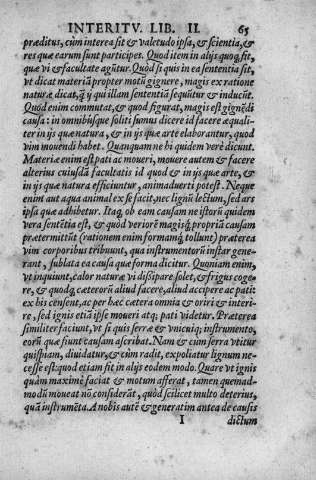 INTERITV. LIB. II. 65
præditus, cùm interea sit & valetudo ipsa, & scientia, &
res quæ earum sunt participes. Quod item in alijs quoq; fit,
quæ vi & facultate agũtur. Quòd si quis in ea sententia sit,
vt dicat materiã propter motũ gignere, magis ex ratione
naturæ dicat, q̃ ÿ qui illam sententiã sequũtur & inducũt.
Quod enim commutat, & quod figurat, magis est gignẽdi
causa: in omnibúsque soliti sumus dicere id facere æquali-
ter in ijs quæ natura, & in ijs quæ arte elaborantur, quod
vim mouendi habet. Quanquam ne hi quidem verè dicunt.
Materiæ enim est pati ac moueri, mouere autem & facere
alterius cuiusdã facultatis id quod & in ijs quæ arte, &
in ijs quæ natura efficiuntur, animaduerti potest. Neque
enim aut aqua animal ex se facit, nec lignũ lectum, sed ars
ipsa quæ adhibetur. Itaq; ob eam causam ne istorũ quidem
vera sentẽtia est, & quòd veriorẽ magisq; propriã causam
prætermittũt (rationem enim formamq; tollunt) præterea
vim corporibus tribuunt, qua instrumentorũ instar gene-
rant, sublata ea causa quæ forma dicitur. Quoniam enim,
vt inquiunt, calor naturæ vi dissipare solet, & frigus coge-
re, & quodq; cæterorũ aliud facere, aliud accipere ac pati:
ex his censent, ac per hæc cætera omnia & oriri & interi-
re, sed ignis etiã ipse moueri atq; pati videtur. Præterea
similiter faciunt, vt si quis serræ & vnicuiq; instrumento,
eorũ quæ fiunt causam ascribat. Nam & cùm serra vtitur
quispiam, diuidatur, & cùm radit, expoliatur lignum ne-
cesse est: quod etiam fit in alijs eodem modo. Quare vt ignis
quàm maximè faciat & motum afferat, tamen quemad-
modũ moueat nõ considerãt, quòd scilicet multo deterius,
quã instrumẽta. A nobis autẽ & generatim antea de causis
I dictum